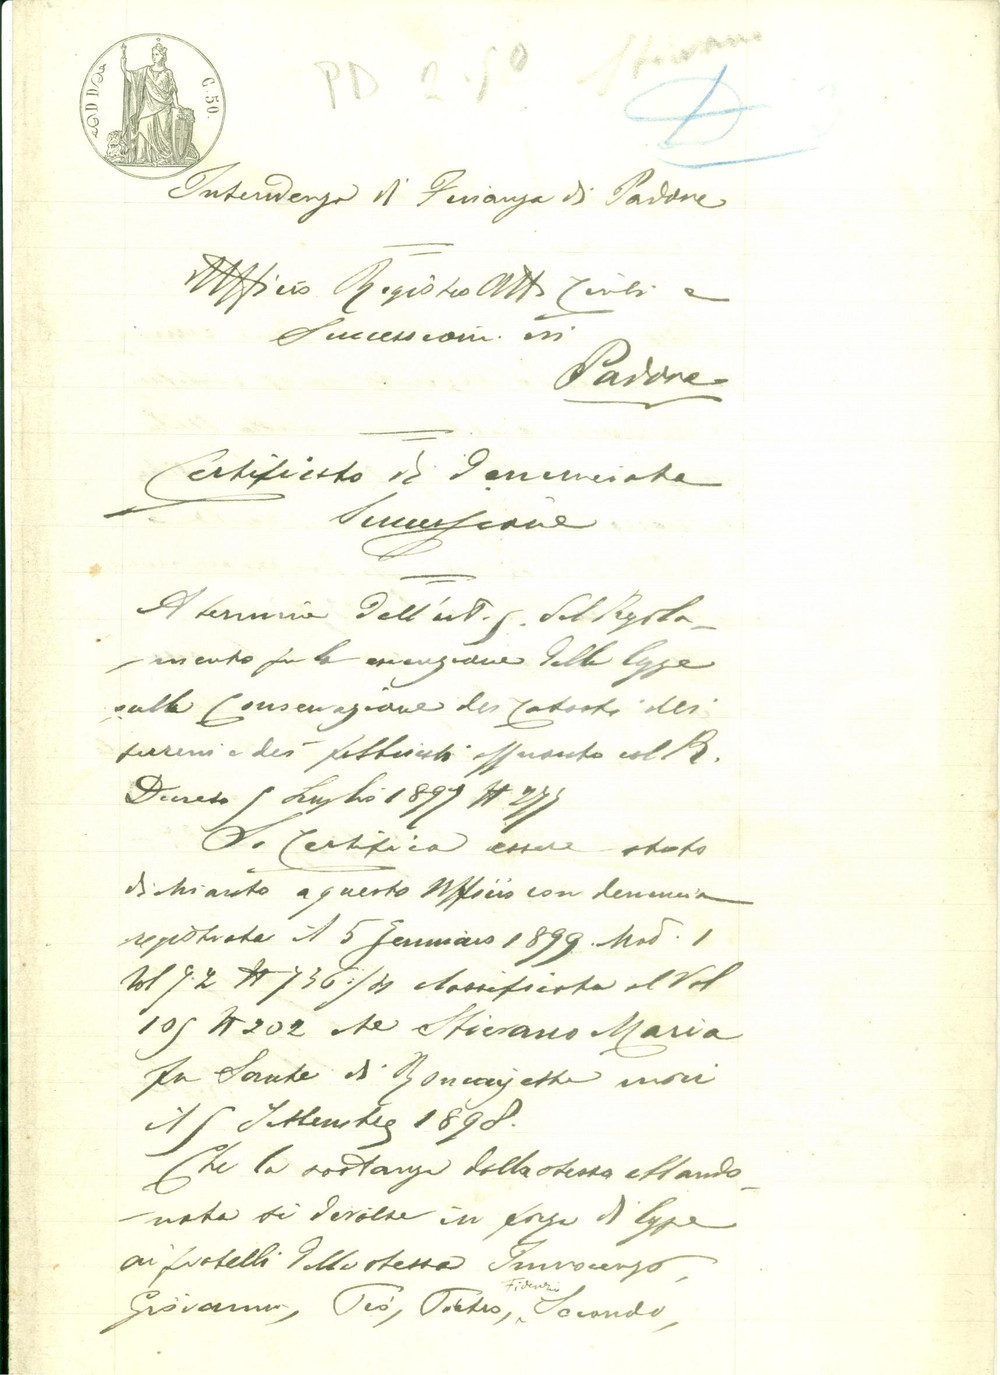 C. 50.
PD 2.50 Stievano
Intendenza di Finanza di Padova
Ufficio Registro Atti Civili e
Successioni in
Padova
Certificato di denunciata
Successione
A termine dell'art. 5. del Regola-
mento per la esecuzione della legge
sulla Conservazione dei Catasti dei
terreni e dei fabbricati approvato col R.
Decreto 5 Luglio 1897 N 275
Si Certifica essere stato
dichiarato a questo Ufficio con denuncia
registrata il 5 Gennaio 1899. Mod. 1
Vol 72 N 736 classificata al Vol
105 N 202 che Stievano Maria
fu Sante di Roncajette morì
il 5 Settembre 1898.
Che la sostanza dalla stessa abbando-
nata si devolse in forza di legge
ai fratelli della stessa Innocenzo,
Fidenzio
Giovanni, Pio, Pietro, Secondo,